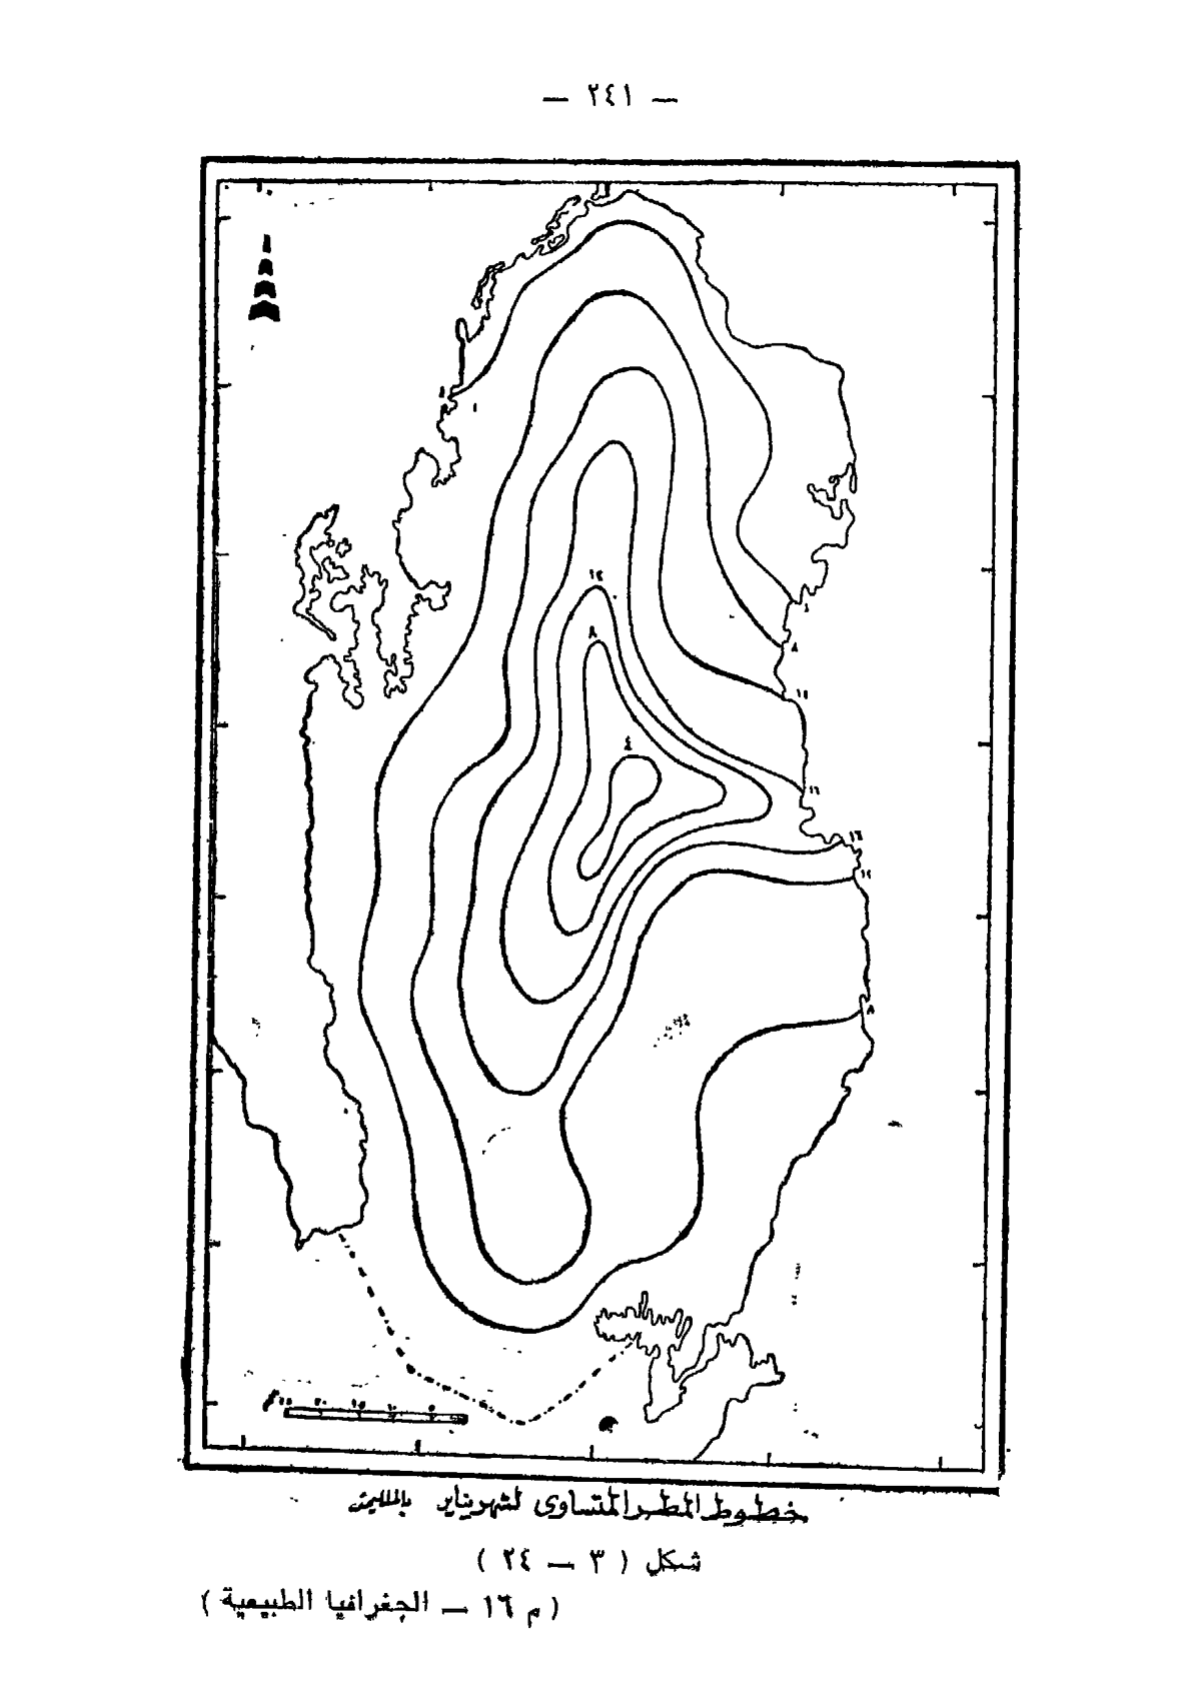 — ٢٤١ —
١٢
٨
٤
٨
١٢
١٦
١٦
١٢
٨
خطوط المطر المتساوى لشهر يناير بالملليمتر
شكل ( ٣ — ٢٤ )
( م ١٦ — الجغرافيا الطبيعية )